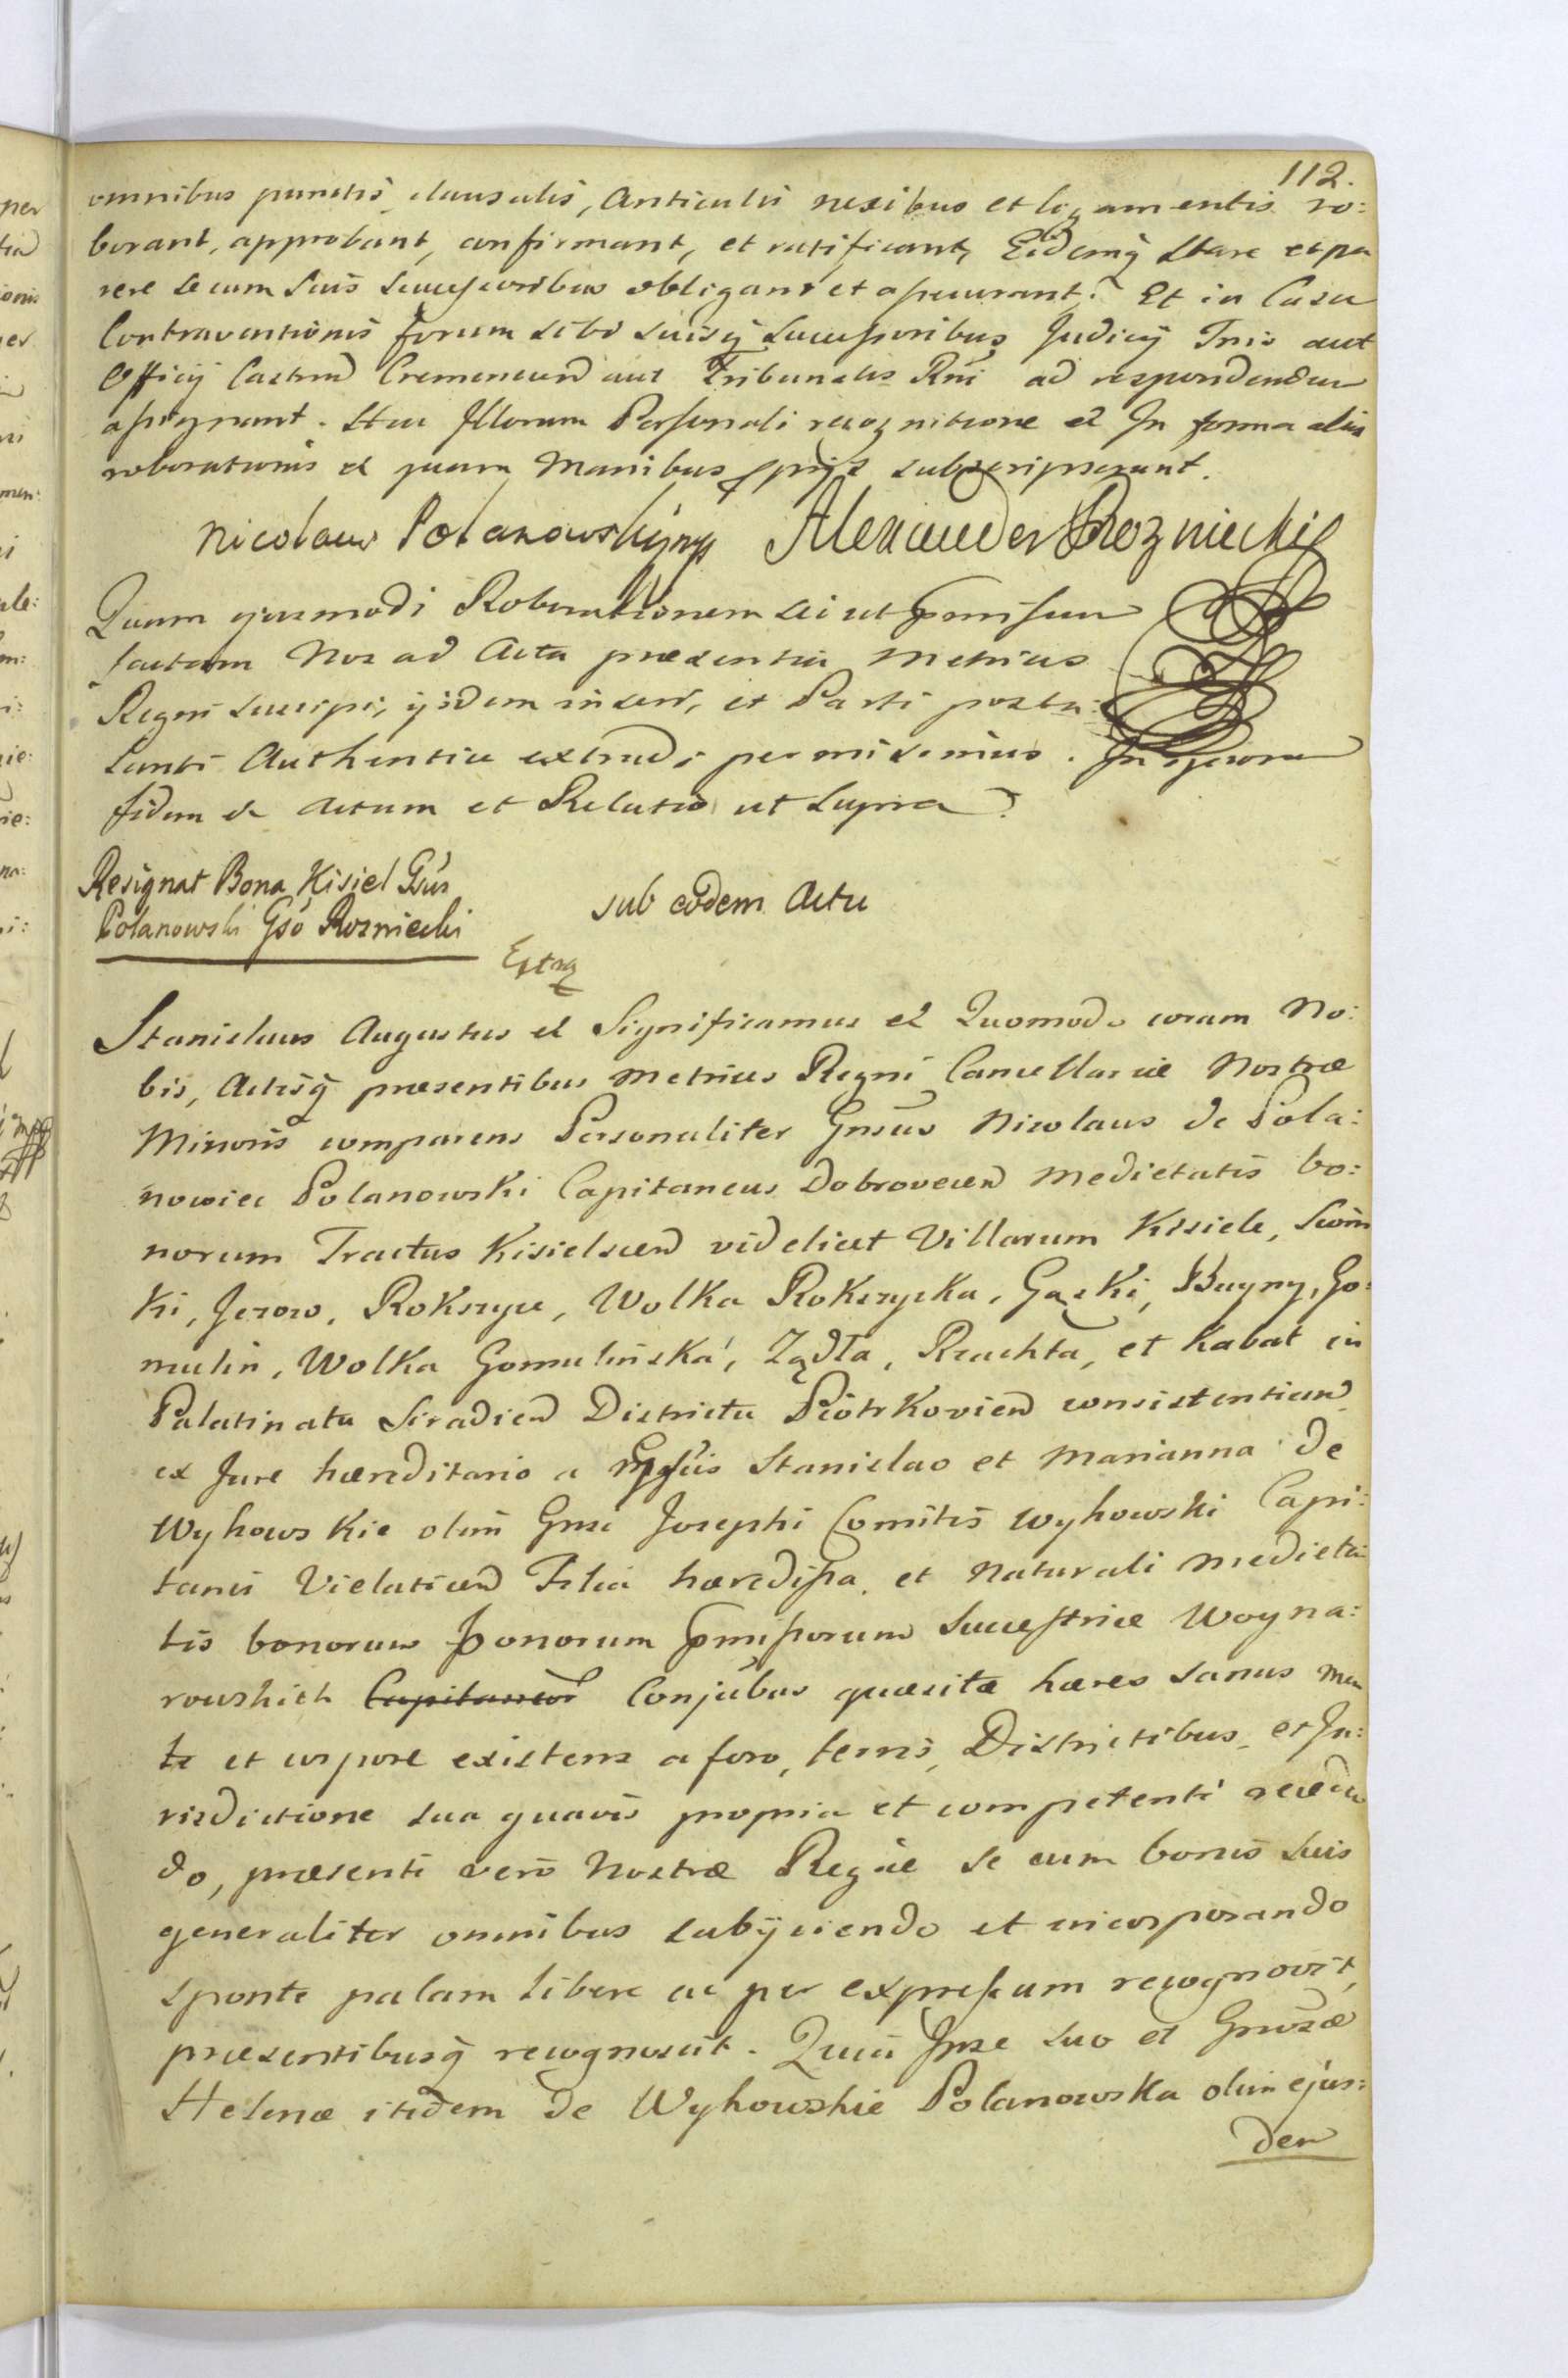 112.
omnibus punctis, clausulis, Articulis nexibus et ligamentis ro:
borant, approbant, confirmant, et ratificant, Eidemq́ stare et pa
rere se cum suis Successoribus obligant et assecurant. Et in Casu
Contraventionis forum sibi suisq́ Successoribus Judicij Tris aut
Officij Castren Cremenecen aut Tribunalis Rńi ad respondendum
assignant. Stan Illorum Personali recognitione et In forma
roborationis et quam Manibus subscripserunt.
Nicolaus Polanowski mp Alexander Rozniecki
Quam ejusmodi Roborationem sic ut
factam Nos ad Acta præsentia Metrices
Regni suscipi, ijsdem inseri, et Parti postu:
lanti Authentice extradi permisimus. In quorum
fidem et Actum et Relatio ut supra
Resignat Bona Kisiel Gsus
Polanowski Gso Rozniecki
sub eodem Actu
Extrq
Stanislaus Augustus et Significamus et Quomodo coram No:
bis, Actisq́ præsentibus Metrices Regni Cancellariæ Nostræ
Minoris comparens Personaliter Gnsus Nicolaus de Pola:
nowice Polanowski Capitaneus Dobrovecen Medietatis bo:
norum Tractus Kisielscen videlicet Villarum Kisiele,
ki, Jezow, Rokszyce, Wolka Rokszycka, Gąski, Buyny, Go:
mulin, Wolka Gomulińska, Żądła, Krachta, et Kabat in
Palatinatu Siradien Districtu Piotrkovien consistentium
ex Jure hæreditario a Stanislao et Marianna de
Wyhowskie olim Gnsi Josephi Comitis Wyhowski Capi:
tanei Vielaticen Filia hæredissa, et Naturali Medieta
tis bonorum bonorum Successtrice Woyna:
rowskich Capitaneor Conjúbus quæsitæ hæres sanus men
te et corpore existens a foro, terris, Districtibus, et Ju:
risdictione sua quavis propria et competenti receden
do, præsenti vero Nostræ Regiæ se cum bonis suis
generaliter omnibus subijciendo et incorporando
sponte palam libere ac per expressum recognovit,
præsentibusq́ recognoscit. Quia Ipse suo et Gnosæ
Helenæ itidem de Wyhowskie Polanowska olim ejus:
dem